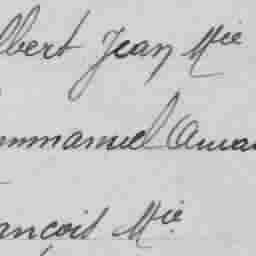 lbert Jean Mie
mmanuel Aman
ançois Mie